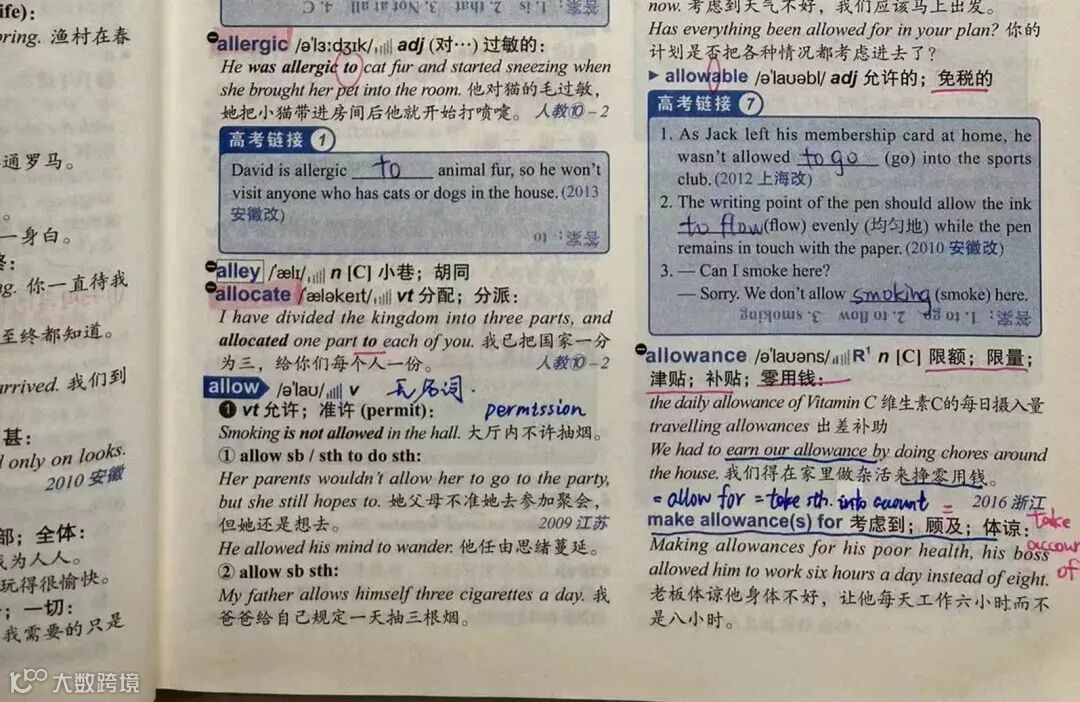 life):
pring. 渔村在春
通罗马。
一身白。
ng. 你一直待我
至终都知道。
arrived. 我们到
甚：
d only on looks.
2010 安徽
部；全体：
我为人人。
玩得很愉快。
；一切：
我需要的只是
答案：1. is 2. that 3. Not at all 4. C
allergic /əˈlɜːdʒɪk/ adj (对…) 过敏的：
He was allergic to cat fur and started sneezing when
she brought her pet into the room. 他对猫的毛过敏，
她把小猫带进房间后他就开始打喷嚏。 人教⑩－2
高考链接 1
David is allergic to animal fur, so he won't
visit anyone who has cats or dogs in the house. (2013
安徽改)
答案：to
alley /ˈælɪ/ n [C] 小巷；胡同
allocate /ˈæləkeɪt/ vt 分配；分派：
I have divided the kingdom into three parts, and
allocated one part to each of you. 我已把国家一分
为三，给你们每个人一份。 人教⑩－2
allow /əˈlaʊ/ v 无名词.
❶ vt 允许；准许 (permit)： permission
Smoking is not allowed in the hall. 大厅内不许抽烟。
① allow sb / sth to do sth:
Her parents wouldn't allow her to go to the party,
but she still hopes to. 她父母不准她去参加聚会，
但她还是想去。 2009 江苏
He allowed his mind to wander. 他任由思绪蔓延。
② allow sb sth:
My father allows himself three cigarettes a day. 我
爸爸给自己规定一天抽三根烟。
now. 考虑到天气不好，我们应该马上出发。
Has everything been allowed for in your plan? 你的
计划是否把各种情况都考虑进去了？
▸ allowable /əˈlaʊəbl/ adj 允许的；免税的
高考链接 7
1. As Jack left his membership card at home, he
wasn't allowed to go (go) into the sports
club. (2012 上海改)
2. The writing point of the pen should allow the ink
to flow (flow) evenly (均匀地) while the pen
remains in touch with the paper. (2010 安徽改)
3. — Can I smoke here?
— Sorry. We don't allow smoking (smoke) here.
答案：1. to go 2. to flow 3. smoking
allowance /əˈlaʊəns/ R¹ n [C] 限额；限量；
津贴；补贴；零用钱：
the daily allowance of Vitamin C 维生素C的每日摄入量
travelling allowances 出差补助
We had to earn our allowance by doing chores around
the house. 我们得在家里做杂活来挣零用钱。
= allow for = take sth. into account = 2016 浙江
make allowance(s) for 考虑到；顾及；体谅： take
Making allowances for his poor health, his boss account
allowed him to work six hours a day instead of eight. of
老板体谅他身体不好，让他每天工作六小时而不
是八小时。
大数跨境